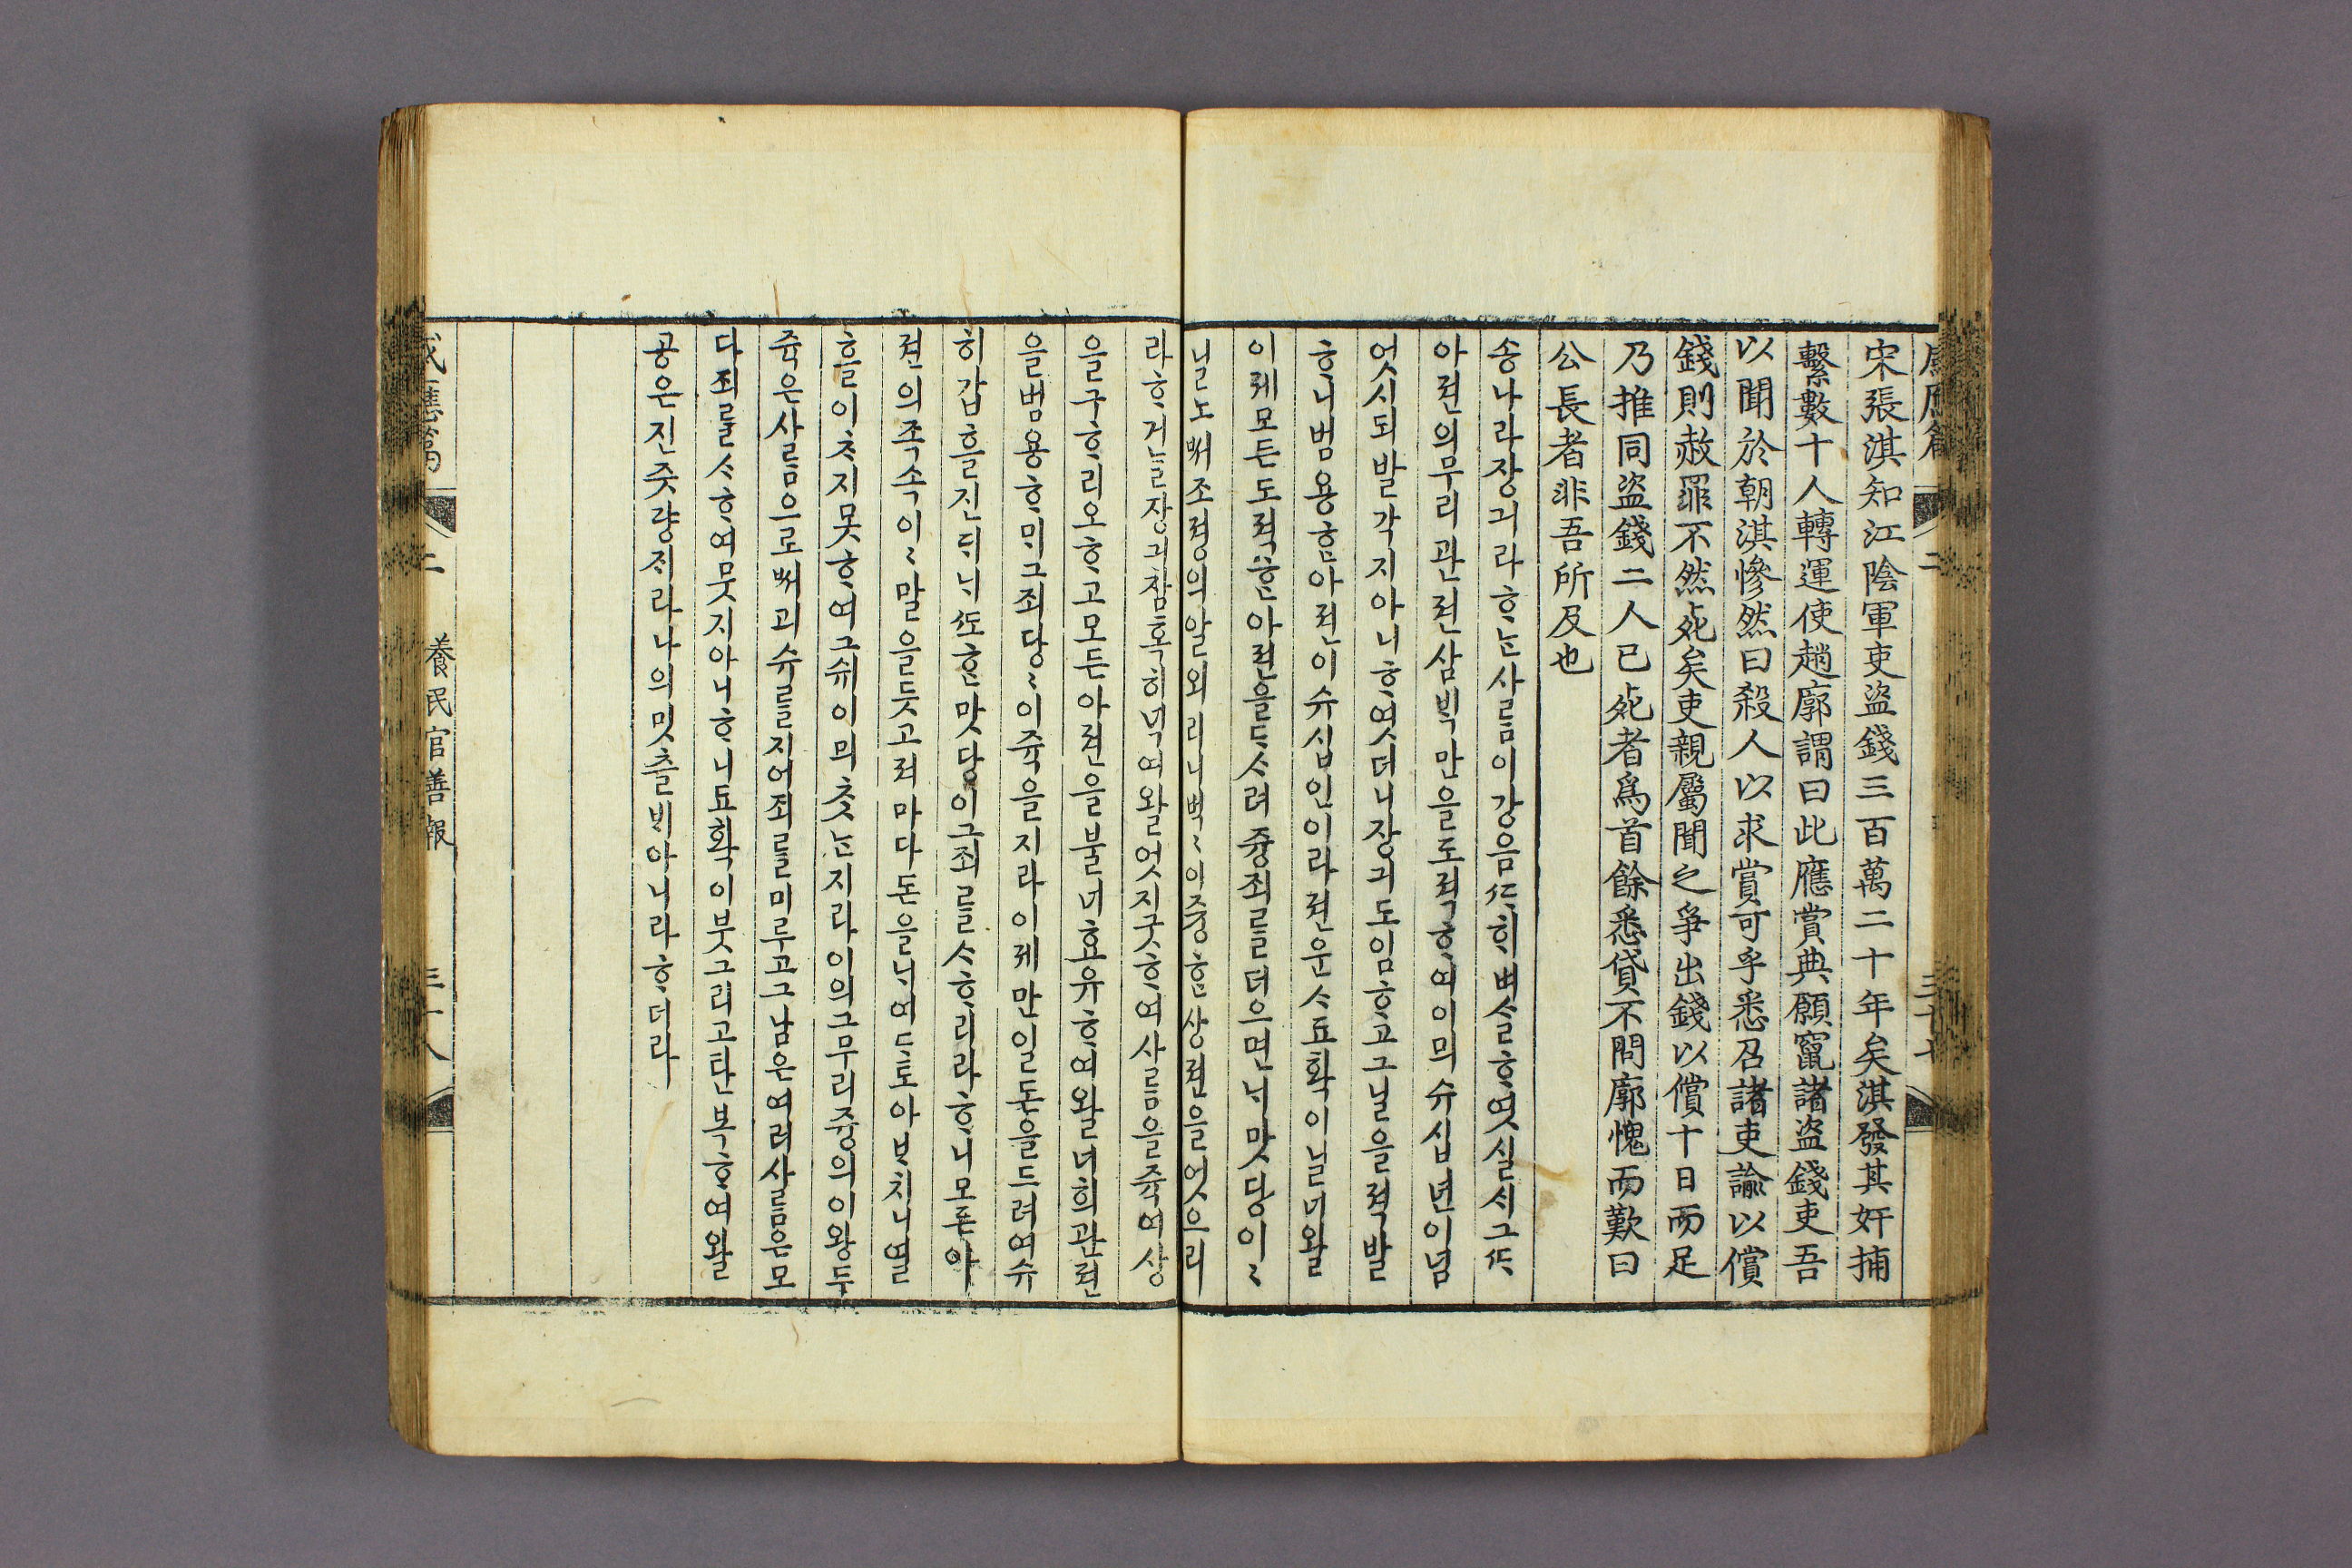 宋張淇知江陰軍吏盜錢三百萬二十年矣淇發其奸捕
繫數十人轉運使趙廓謂曰此應賞典願竄諸盜錢吏吾
以聞於朝淇慘然曰殺人以求賞可乎悉召諸吏諭以償
錢則赦罪不然死矣吏親屬聞之爭出錢以償十日而足
乃推同盜錢二人已死者爲首餘悉貸不問廓愧而歎曰
公長者非吾所及也
송나라쟝긔라ᄒᆞᄂᆞᆫ사ᄅᆞᆷ이강음ᄯᆞ히벼슬ᄒᆞ엿실ᄉᆡ그ᄯᆞ
아젼의무리관젼삼ᄇᆡᆨ만을도젹ᄒᆞ여이믜슈십년이넘
엇시되발각지아니ᄒᆞ엿더니쟝긔도임ᄒᆞ고그닐을젹발
ᄒᆞ니범용ᄒᆞᆫ아젼이슈십인이라젼운ᄉᆞ됴확이닐너왈
이졔모든도젹ᄒᆞᆫ아젼을드ᄉᆞ려즁죄를더으면ᄂᆡ맛당이〻
닐노ᄡᅥ조졍의알외리니벅〻이즁ᄒᆞᆫ샹젼을엇으리
라ᄒᆞ거ᄂᆞᆯ쟝긔참혹히넉여왈엇지구ᄒᆞ여사ᄅᆞᆷ을쥭여샹
을구ᄒᆞ리오ᄒᆞ고모든아젼을불너효유ᄒᆞ여왈너희관젼
을범용ᄒᆞᄆᆡ그죄당〻이쥭을지라이졔만일돈을드려여슈
히갑흘진ᄃᆡᄂᆡᄯᅩᄒᆞᆫ맛당이그죄를ᄉᆞᄒᆞ리라ᄒᆞ니모든아
젼의족쇽이〻말을듯고져마다돈을ᄂᆡ여ᄃᆞ토아보치니열
흘이ᄎᆞ지못ᄒᆞ여그쉬이믜ᄎᆞᆺᄂᆞᆫ지라이의그무리즁의이왕두
쥭은사ᄅᆞᆷ으로ᄡᅥ괴슈를지어죄를미루고그남은여러사ᄅᆞᆷ은모
다죄를ᄉᆞᄒᆞ여뭇지아니ᄒᆞ니됴확이붓그리고탄복ᄒᆞ여왈
공은진즛량ᄌᆡ라나의밋츨ᄇᆡ아니라ᄒᆞ더라
感應篇 二 養民官善報 三十八